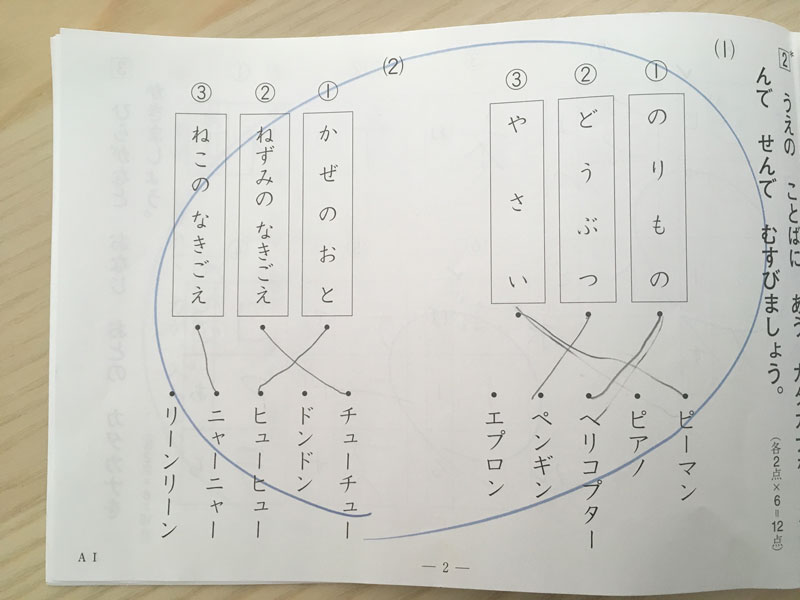 2
うえの ことばに あう
んで せんで むすびましょう。
(各2点×6=12点)
(1)
① のりもの
② どうぶつ
③ やさい
ピーマン
ピアノ
ヘリコプター
ペンギン
エプロン
(2)
① かぜのおと
② ねずみの なきごえ
③ ねこの なきごえ
チューチュー
ドンドン
ヒューヒュー
ニャーニャー
リーンリーン
— 2 —
A I